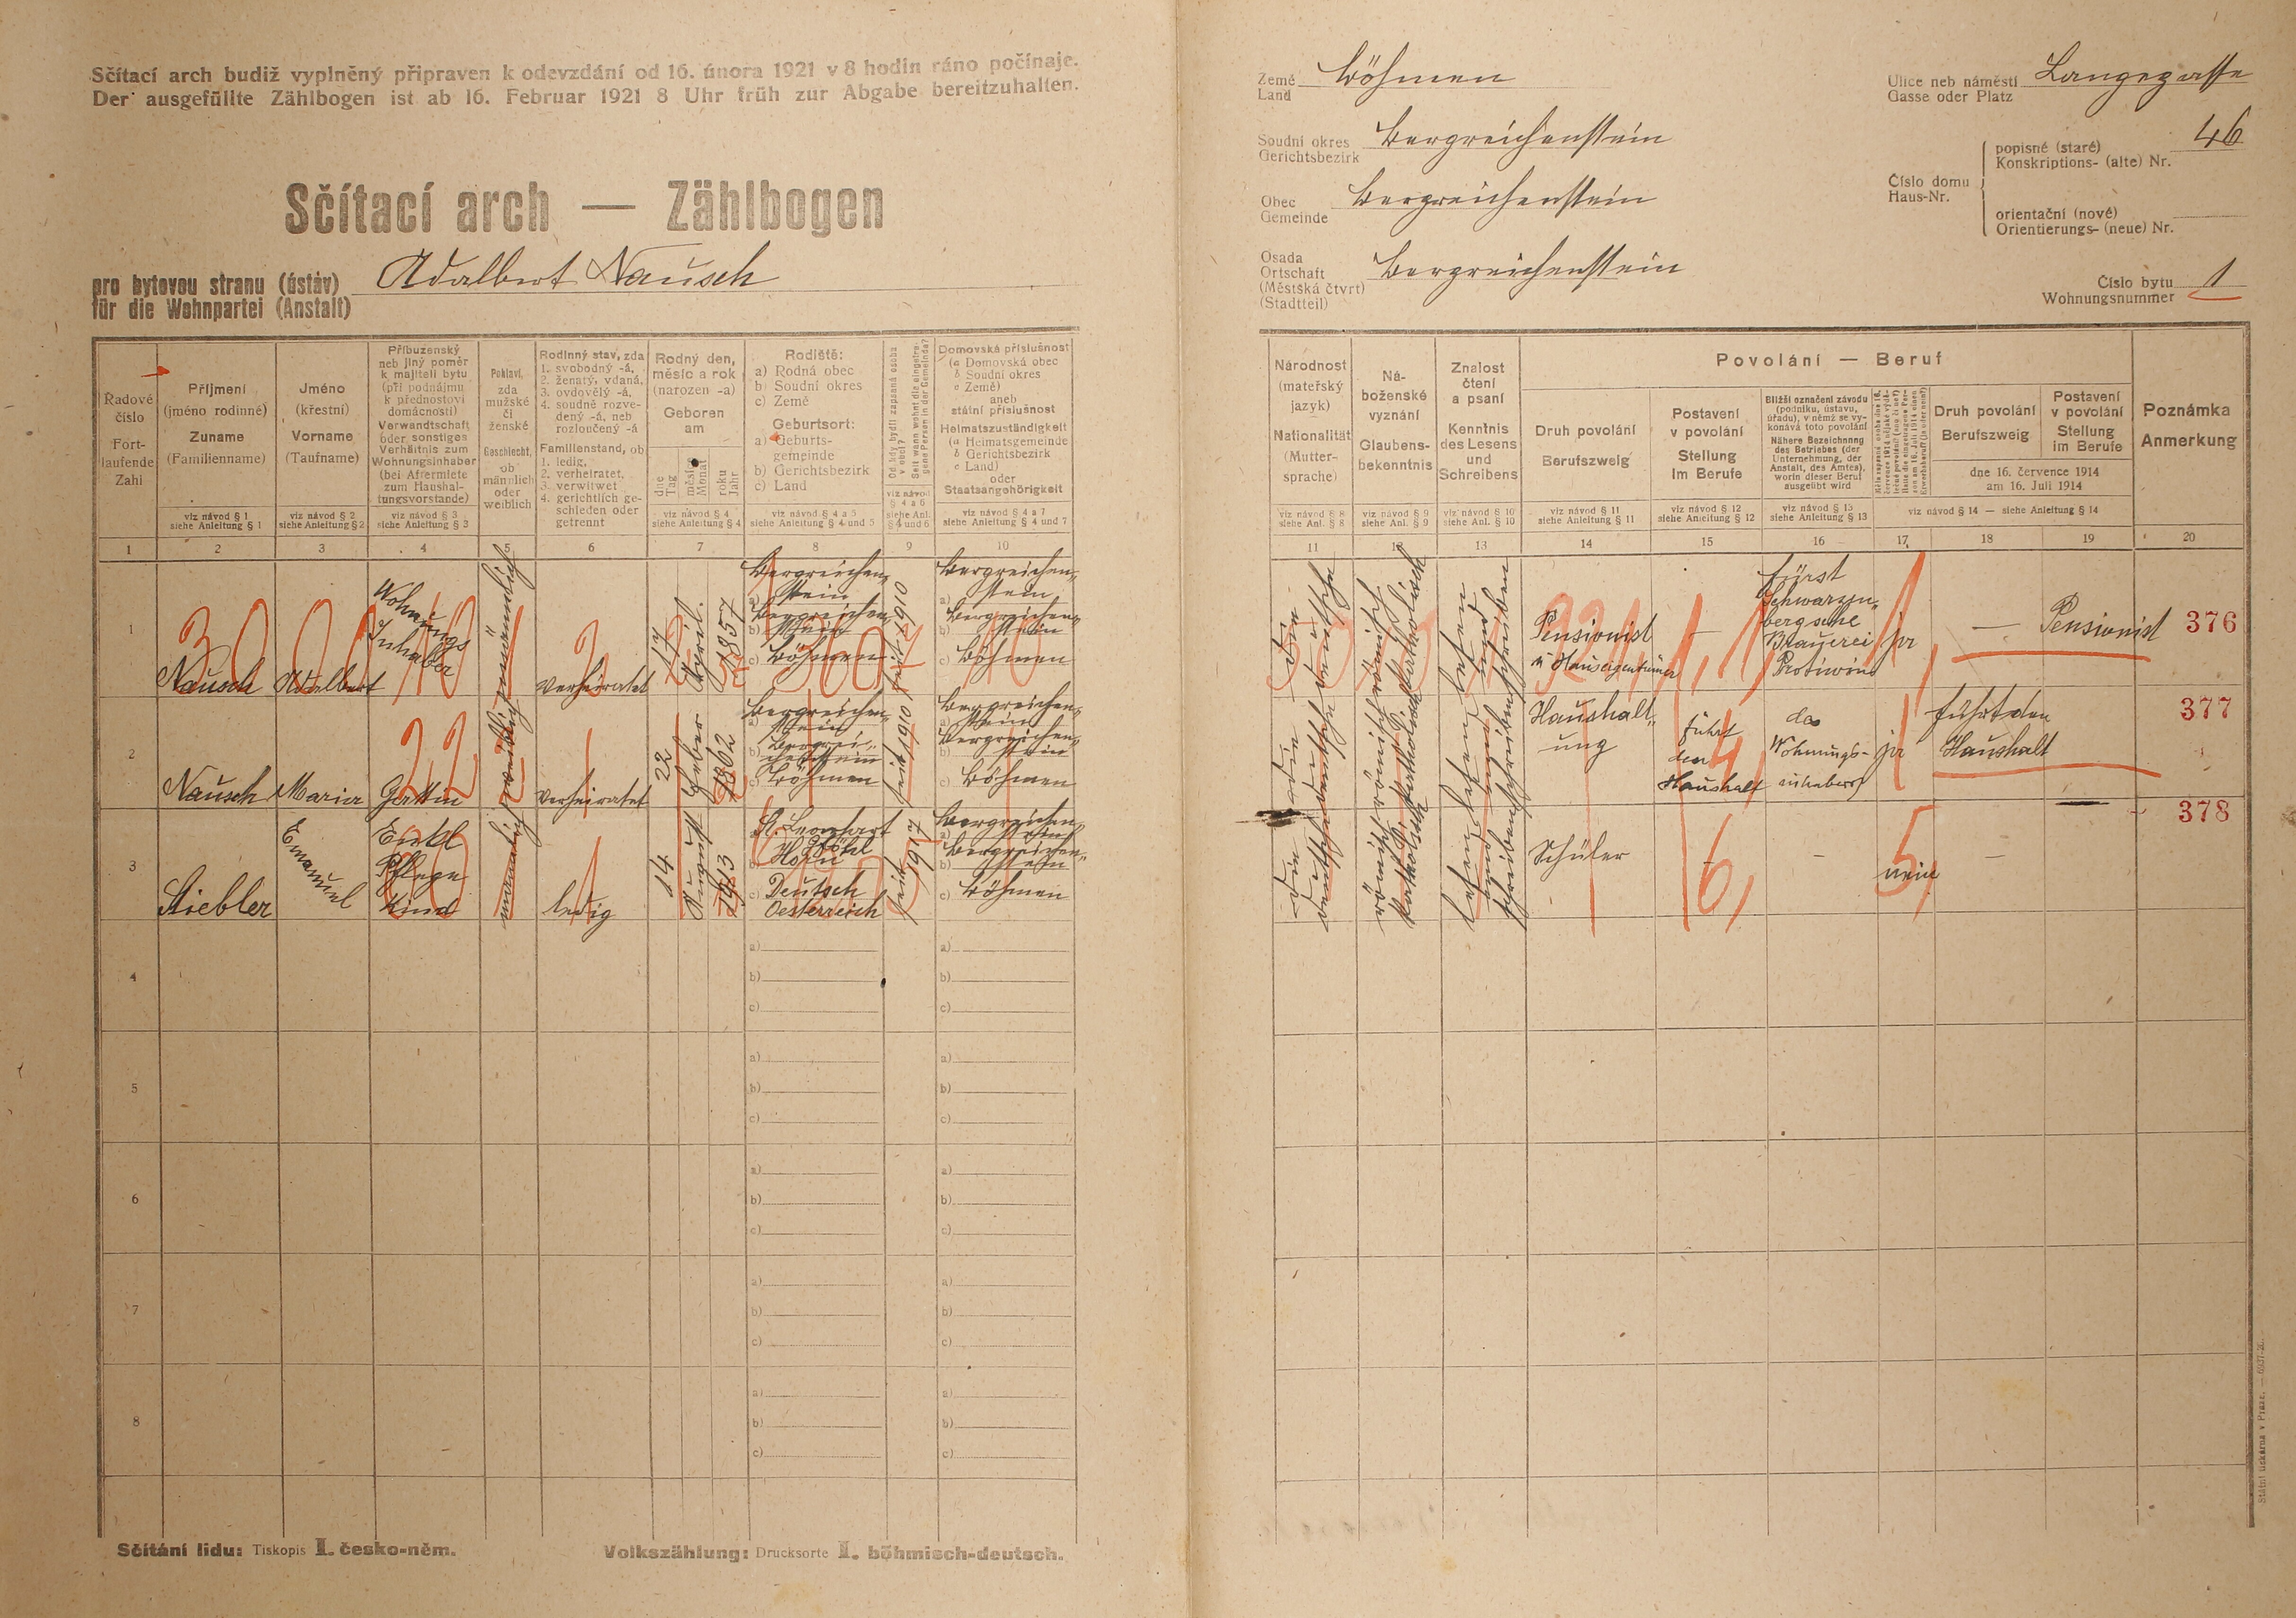 Sčítací arch budiž vyplněný připraven k odevzdání od 16. února 1921 v 8 hodin ráno počínaje.
Der ausgefüllte Zählbogen ist ab 16. Februar 1921 8 Uhr früh zur Abgabe bereitzuhalten.
Sčítací arch — Zählbogen
pro bytovou stranu (ústav)
für die Wohnpartei (Anstalt)
Adalbert Nausch
Země
Land
Böhmen
Soudní okres
Gerichtsbezirk
Bergreichenstein
Obec
Gemeinde
Bergreichenstein
Osada
Ortschaft
(Městská čtvrt)
(Stadtteil)
Bergreichenstein
Ulice neb náměstí
Gasse oder Platz
Langegasse
Číslo domu
Haus-Nr.
popisné (staré)
Konskriptions- (alte) Nr.
46
orientační (nové)
Orientierungs- (neue) Nr.
Číslo bytu
Wohnungsnummer
1
Řadové
číslo
Fort-
laufende
Zahl
1
Příjmení
(jméno rodinné)
Zuname
(Familienname)
viz návod § 1
siehe Anleitung § 1
2
Jméno
(křestní)
Vorname
(Taufname)
viz návod § 2
siehe Anleitung § 2
3
Příbuzenský
neb jiný poměr
k majiteli bytu
(při podnájmu
k přednostovi
domácnosti)
Verwandtschaft
oder sonstiges
Verhältnis zum
Wohnungsinhaber
(bei Aftermiete
zum Haushal-
tungsvorstande)
viz návod § 3
siehe Anleitung § 3
4
Pohlaví,
zda
mužské
či
ženské
Geschlecht,
ob
männlich
oder
weiblich
5
Rodinný stav, zda
1. svobodný -á,
2. ženatý, vdaná,
3. ovdovělý -á,
4. soudně rozve-
dený -á, neb
rozloučený -á
Familienstand, ob
1. ledig,
2. verheiratet,
3. verwitwet
4. gerichtlich ge-
schieden oder
getrennt
6
Rodný den,
měsíc a rok
(narozen -a)
Geboren
am
dne
Tag
měsíc
Monat
roku
Jahr
viz návod § 4
siehe Anleitung § 4
7
Rodiště:
a) Rodná obec
b) Soudní okres
c) Země
Geburtsort:
a) Geburts-
gemeinde
b) Gerichtsbezirk
c) Land
viz návod § 4 a 5
siehe Anleitung § 4 und 5
8
Od kdy bydlí zapsaná osoba
v obci?
Seit wann wohnt die eingetra-
gene Person in der Gemeinde?
viz návod
§ 4 a 6
siehe Anl.
§ 4 und 6
9
Domovská příslušnost
(a Domovská obec
b Soudní okres
c Země)
aneb
státní příslušnost
Heimatszuständigkeit
(a Heimatsgemeinde
b Gerichtsbezirk
c Land)
oder
Staatsangehörigkeit
viz návod § 4 a 7
siehe Anleitung § 4 und 7
10
Národnost
(mateřský
jazyk)
Nationalität
(Mutter-
sprache)
viz návod § 8
siehe Anl. § 8
11
Ná-
boženské
vyznání
Glaubens-
bekenntnis
viz návod § 9
siehe Anl. § 9
12
Znalost
čtení
a psaní
Kenntnis
des Lesens
und
Schreibens
viz návod § 10
siehe Anl. § 10
13
Povolání — Beruf
Druh povolání
Berufszweig
viz návod § 11
siehe Anleitung § 11
14
Postavení
v povolání
Stellung
im Berufe
viz návod § 12
siehe Anleitung § 12
15
Bližší označení závodu
(podniku, ústavu,
úřadu), v němž se vy-
konává toto povolání
Nähere Bezeichnung
des Betriebes (der
Unternehmung, der
Anstalt, des Amtes),
worin dieser Beruf
ausgeübt wird
viz návod § 13
siehe Anleitung § 13
16
17
Druh povolání
Berufszweig
Postavení
v povolání
Stellung
im Berufe
dne 16. července 1914
am 16. Juli 1914
viz návod § 14 — siehe Anleitung § 14
18
19
Poznámka
Anmerkung
20
1
Nausch
Adalbert
Wohnungs
Inhaber
männlich
verheiratet
17
April.
1857
Bergreichen-
a) stein
Bergreichen-
b) stein
c) Böhmen
seit 1910
Bergreichen-
a) stein
Bergreichen-
b) stein
c) Böhmen
die deutsche
römisch katholisch
lesen und schreiben
Pensionist
u Hauseigentümer
—
Fürst
Schwarzen-
bergsche
Brauerei
Protiwin
ja
—
Pensionist
376
2
Nausch
Maria
Gattin
weiblich
verheiratet
22
Feber
1862
Bergreichen-
a) stein
Bergrei-
b) chenstein
c) Böhmen
seit 1910
Bergreichen-
a) stein
Bergreichen-
b) stein
c) Böhmen
die deutsche
römisch katholisch
lesen und schreiben
Haushalt-
ung
führt
den
Haushalt
des
Wohnungs-
inhabers
ja
führt den
Haushalt
377
3
Stiebler
Emanuel
Enkel
Pflege
Kind
männlich
ledig
14
August
1913
a) St. Leonhart
b) Horn
c) Deutsch
Oesterreich
seit 1917
Bergreichen-
a) stein
Bergreichen-
b) stein
c) Böhmen
die deutsche
römisch katholisch
lesen und schreiben
Schüler
–
–
nein
–
378
4
a)
b)
c)
a)
b)
c)
5
a)
b)
c)
a)
b)
c)
6
a)
b)
c)
a)
b)
c)
7
a)
b)
c)
a)
b)
c)
8
a)
b)
c)
a)
b)
c)
Sčítání lidu: Tiskopis I. česko-něm.
Volkszählung: Drucksorte I. böhmisch-deutsch.